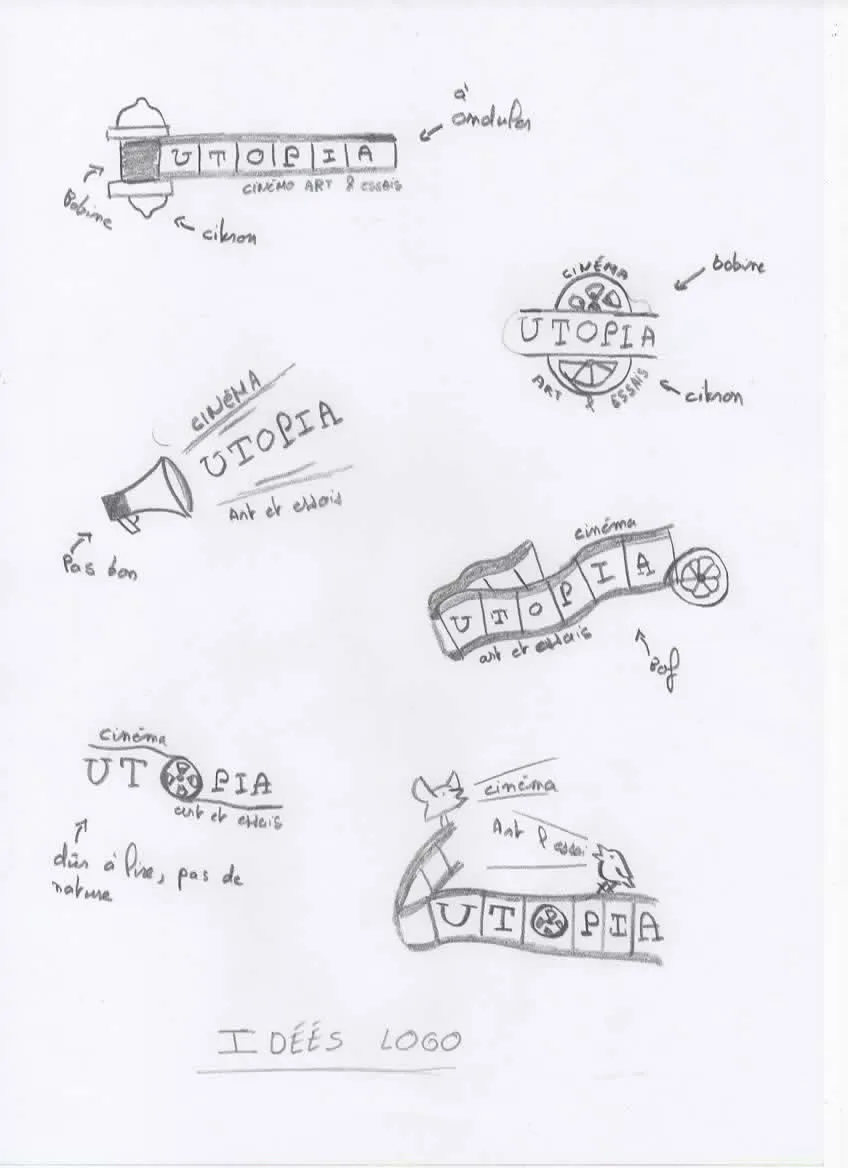 à
onduler
UTOPIA
CINÉMA ART & ESSAIS
Bobine
citron
bobine
CINÉMA
UTOPIA
ART & ESSAIS
citron
CINÉMA
UTOPIA
Art et essais
Pas bon
cinéma
UTOPIA
art et essais
Bof
cinéma
UT PIA
art et essais
dûr à lire, pas de
nature
cinéma
Art & essai
UT PIA
IDÉÉS LOGO